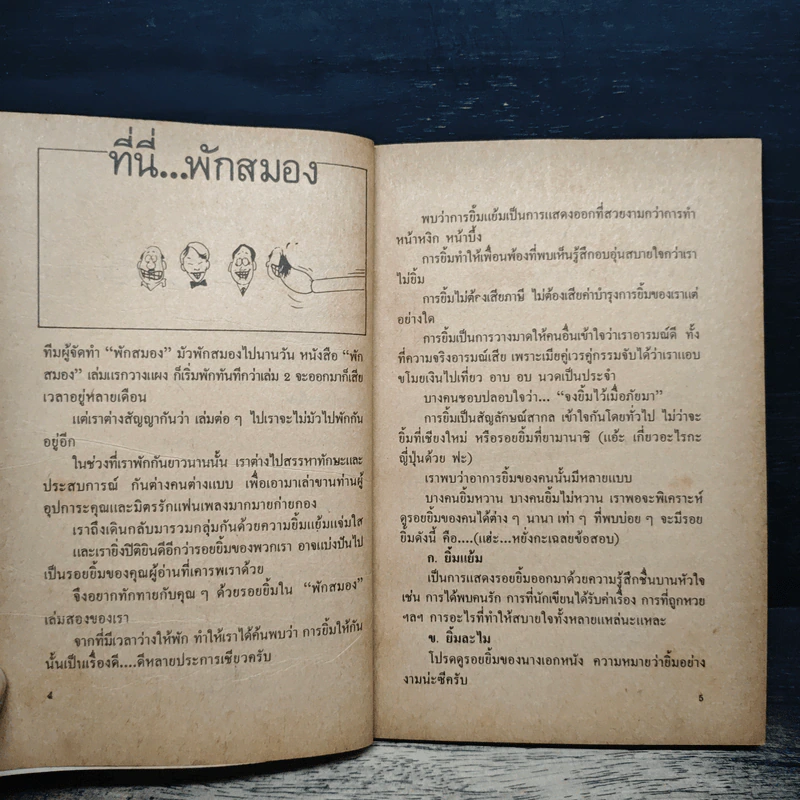 ที่นี่...พักสมอง
ทีมผู้จัดทำ “พักสมอง” มัวพักสมองไปนานวัน หนังสือ “พัก
สมอง” เล่มแรกวางแผง ก็เริ่มพักทันทีกว่าเล่ม 2 จะออกมาก็เสีย
เวลาอยู่หลายเดือน
แต่เราต่างสัญญากันว่า เล่มต่อ ๆ ไปเราจะไม่มัวไปพักกัน
อยู่อีก
ในช่วงที่เราพักกันยาวนานนั้น เราต่างไปสรรหาทักษะและ
ประสบการณ์ กันต่างคนต่างแบบ เพื่อเอามาเล่าขานท่านผู้
อุปการะคุณและมิตรรักแฟนเพลงมากมายก่ายกอง
เราถึงเดินกลับมารวมกลุ่มกันด้วยความยิ้มแย้มแจ่มใส
และเรายิ่งปิติยินดีอีกว่ารอยยิ้มของพวกเรา อาจแบ่งปันไป
เป็นรอยยิ้มของคุณผู้อ่านที่เคารพเราด้วย
จึงอยากทักทายกับคุณ ๆ ด้วยรอยยิ้มใน “พักสมอง”
เล่มสองของเรา
จากที่มีเวลาว่างให้พัก ทำให้เราได้ค้นพบว่า การยิ้มให้กัน
นั้นเป็นเรื่องดี....ดีหลายประการเชียวครับ
4
พบว่าการยิ้มแย้มเป็นการแสดงออกที่สวยงามกว่าการทำ
หน้าหงิก หน้าบึ้ง
การยิ้มทำให้เพื่อนพ้องที่พบเห็นรู้สึกอบอุ่นสบายใจกว่าเรา
ไม่ยิ้ม
การยิ้มไม่ต้องเสียภาษี ไม่ต้องเสียค่าบำรุงการยิ้มของเราแต่
อย่างใด
การยิ้มเป็นการวางมาดให้คนอื่นเข้าใจว่าเราอารมณ์ดี ทั้ง
ที่ความจริงอารมณ์เสีย เพราะเมียคู่เวรคู่กรรมจับได้ว่าเราแอบ
ขโมยเงินไปเที่ยว อาบ อบ นวดเป็นประจำ
บางคนชอบปลอบใจว่า... “จงยิ้มไว้เมื่อภัยมา”
การยิ้มเป็นสัญลักษณ์สากล เข้าใจกันโดยทั่วไป ไม่ว่าจะ
ยิ้มที่เชียงใหม่ หรือรอยยิ้มที่ยามานาชิ (แอ้ะ เกี่ยวอะไรกะ
ญี่ปุ่นด้วย ฟะ)
เราพบว่าอาการยิ้มของคนนั้นมีหลายแบบ
บางคนยิ้มหวาน บางคนยิ้มไม่หวาน เราพอจะพิเคราะห์
ดูรอยยิ้มของคนได้ต่าง ๆ นานา เท่า ๆ ที่พบบ่อย ๆ จะมีรอย
ยิ้มดังนี้ คือ....(แฮ่ะ...หยั่งกะเฉลยข้อสอบ)
ก. ยิ้มแย้ม
เป็นการแสดงรอยยิ้มออกมาด้วยความรู้สึกชื่นบานหัวใจ
เช่น การได้พบคนรัก การที่นักเขียนได้รับค่าเรื่อง การที่ถูกหวย
ฯลฯ การอะไรที่ทำให้สบายใจทั้งหลายแหล่นะแหละ
ข. ยิ้มละไม
โปรดดูรอยยิ้มของนางเอกหนัง ความหมายว่ายิ้มอย่าง
งามน่ะซีครับ
5